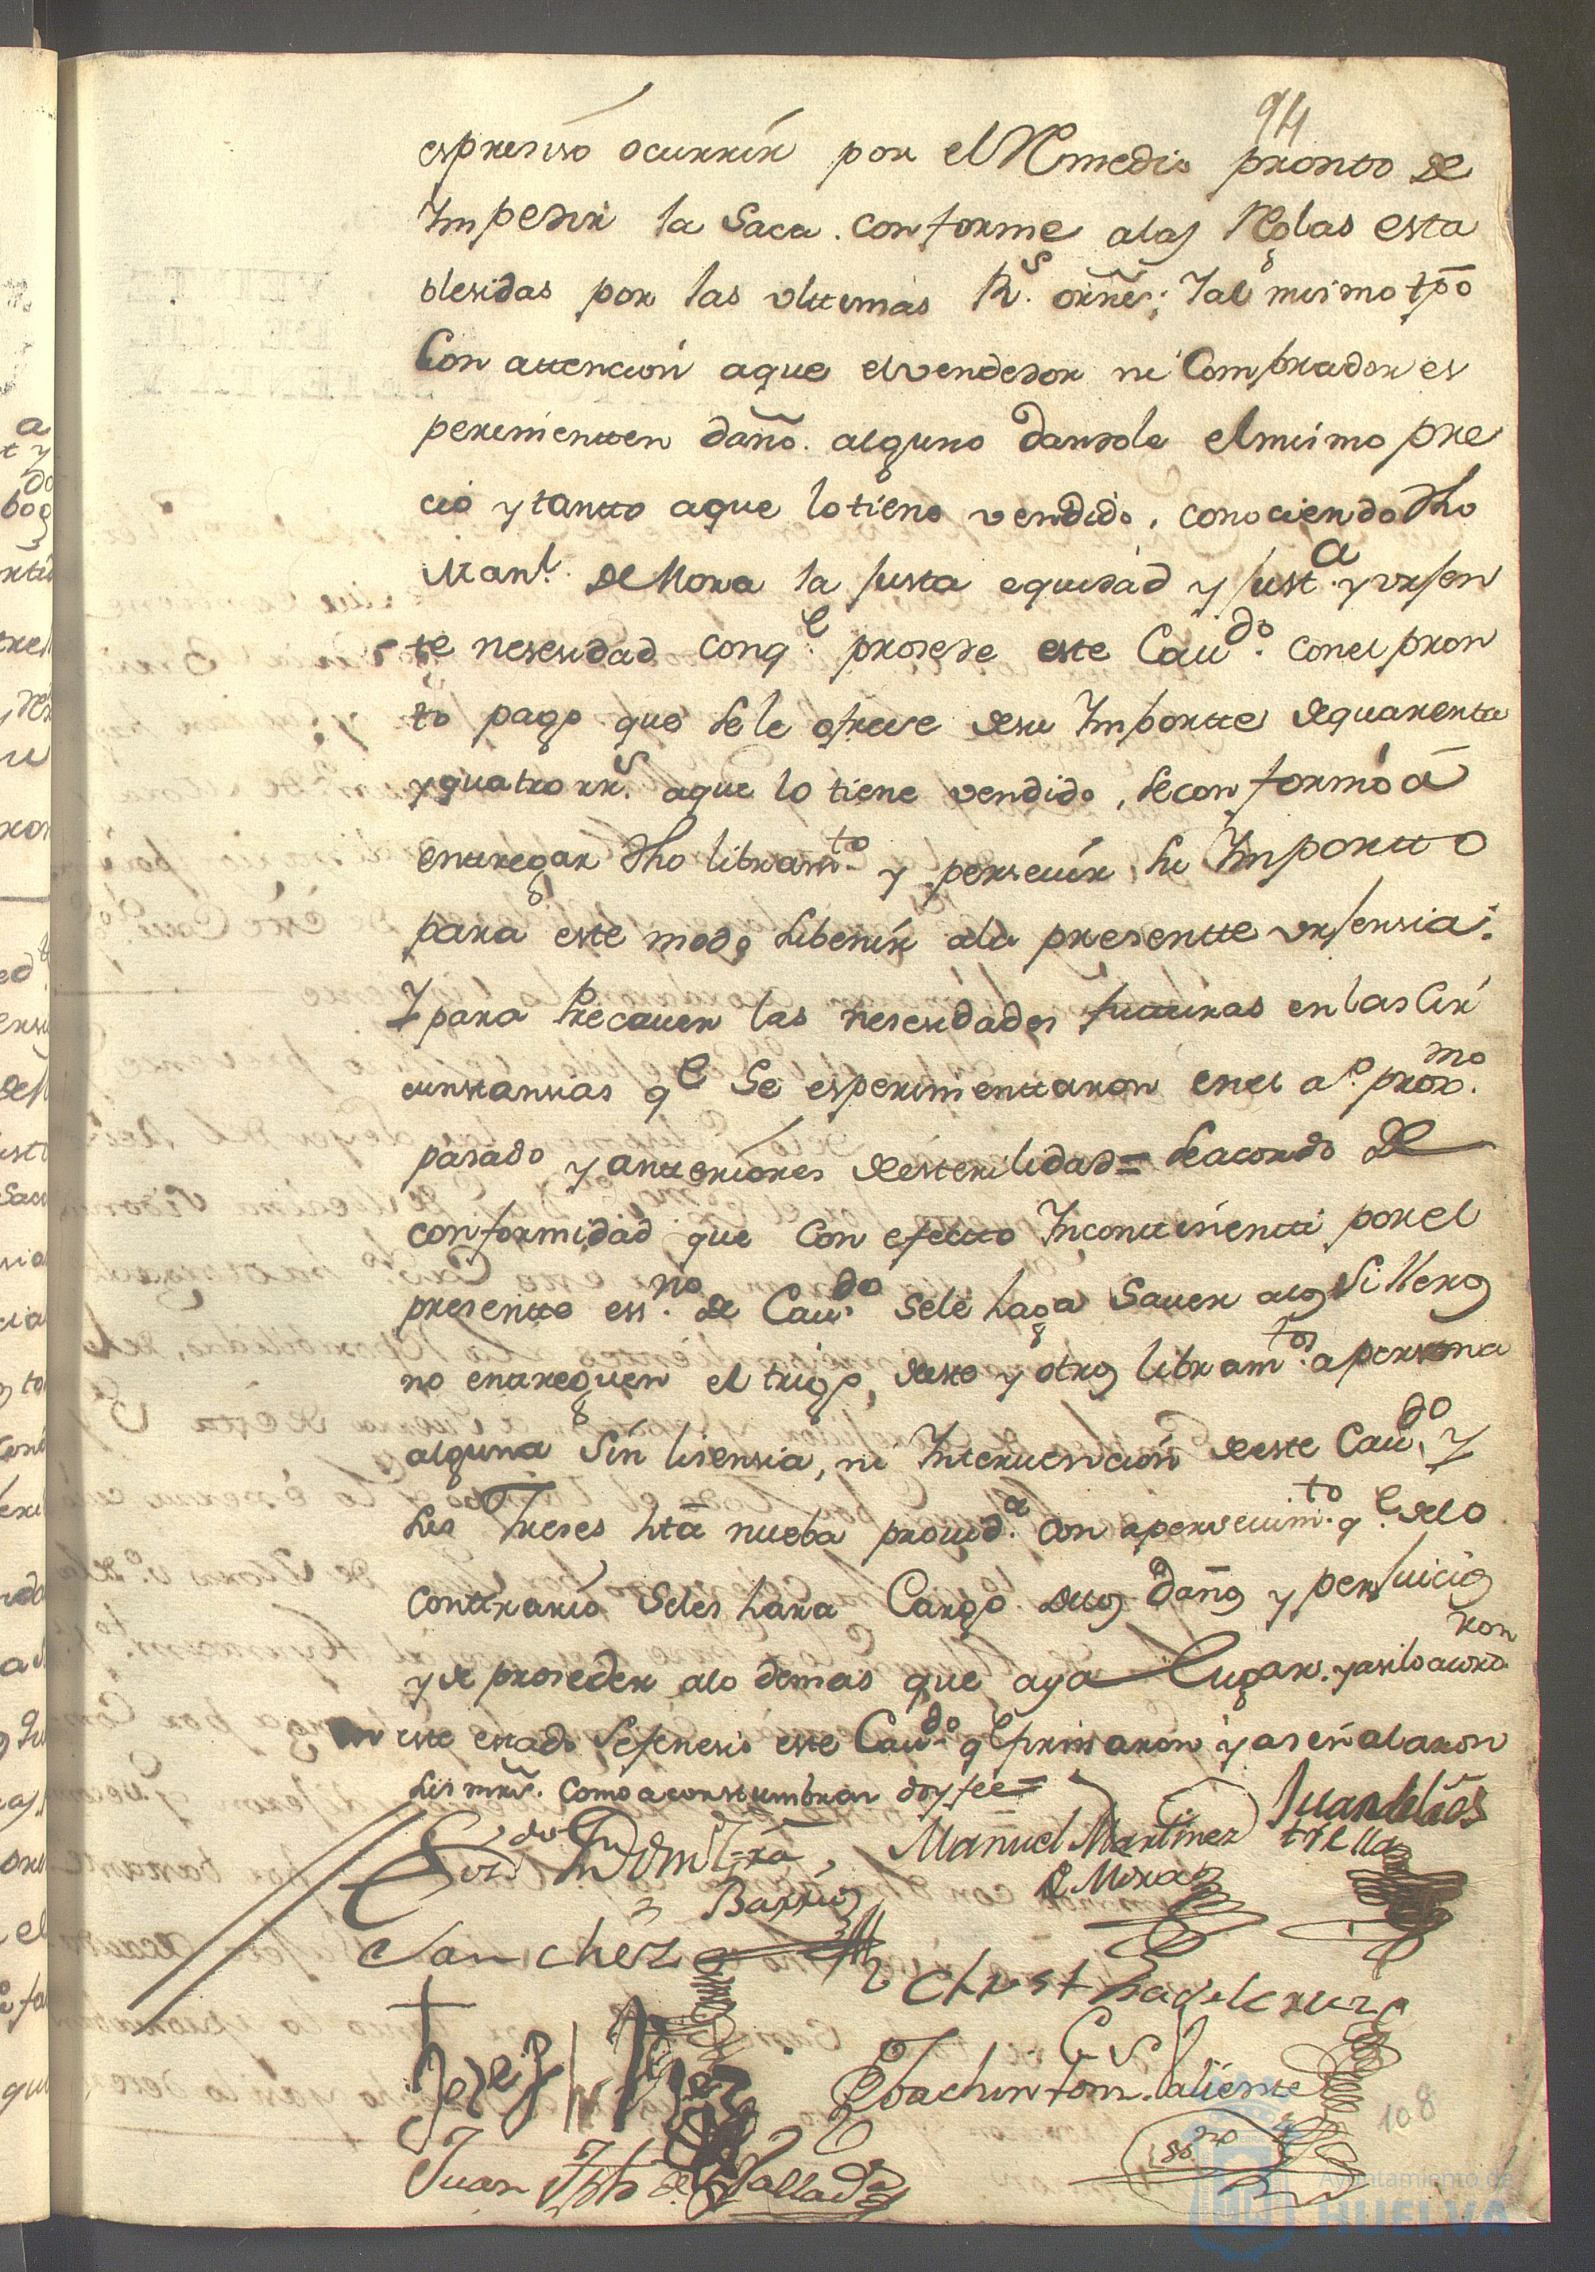 94
espresiso ocurrir por el Remedio prontto de
Impedir la Saca conforme alas Reglas esta
blesidas por las vlttimas Rs. orñes; Y al mismo tpõ
Con attencion aque elvendedor ni Comprador es
perimentten daño alguno dandole elmismo pre
cio y tantto aque lo tiene vendido, conociendo dho
Manl. de Mora la Justa equidad y Justa. y vrjen
te nesesidad conqe. prosede este Caudo. conel pron
to pago que sele ofrece desu Importte dequarenta
y quatro rrs. aque lo tiene vendido, seconformó á
enttregar dho libramto. y persevir su Importto
para este modo subenir ala presentte vrjensia:
Y para Precauer las nesesidades futturas en las Cir
cunstansias qe Se esperimenttaron enel ao. proxmo.
pasado y antteriores de esterilidad = Se acordó de
conformidad que Con efectto Inconttinentti por el
presentte essno. de Caudo. sele haga Sauer alos Silleros
no enttreguen el trigo, deste y otros libramtos. apersona
alguna Sin lisensia, ni Interuension de este Caudo. Y
sus Treses htã nueba prouida. con apersevimto. qe. delo
conttrario Seles hara Cargo delos daños y perjuicios
y de proseder alo demas que aya Lugar. y asilo acordaron
este estado sefenesió este Caudo. qe firmaron y aseñalaron
sus mrds. como acosttumbran doy fee =
Manuel Martinez
de Mora
Juan delias
trella
Barrios
Sanchez
Christ badelcruz
Juan de Valladz
Joachin valiente
ssno
108
Ayuntamiento de
HUELVA